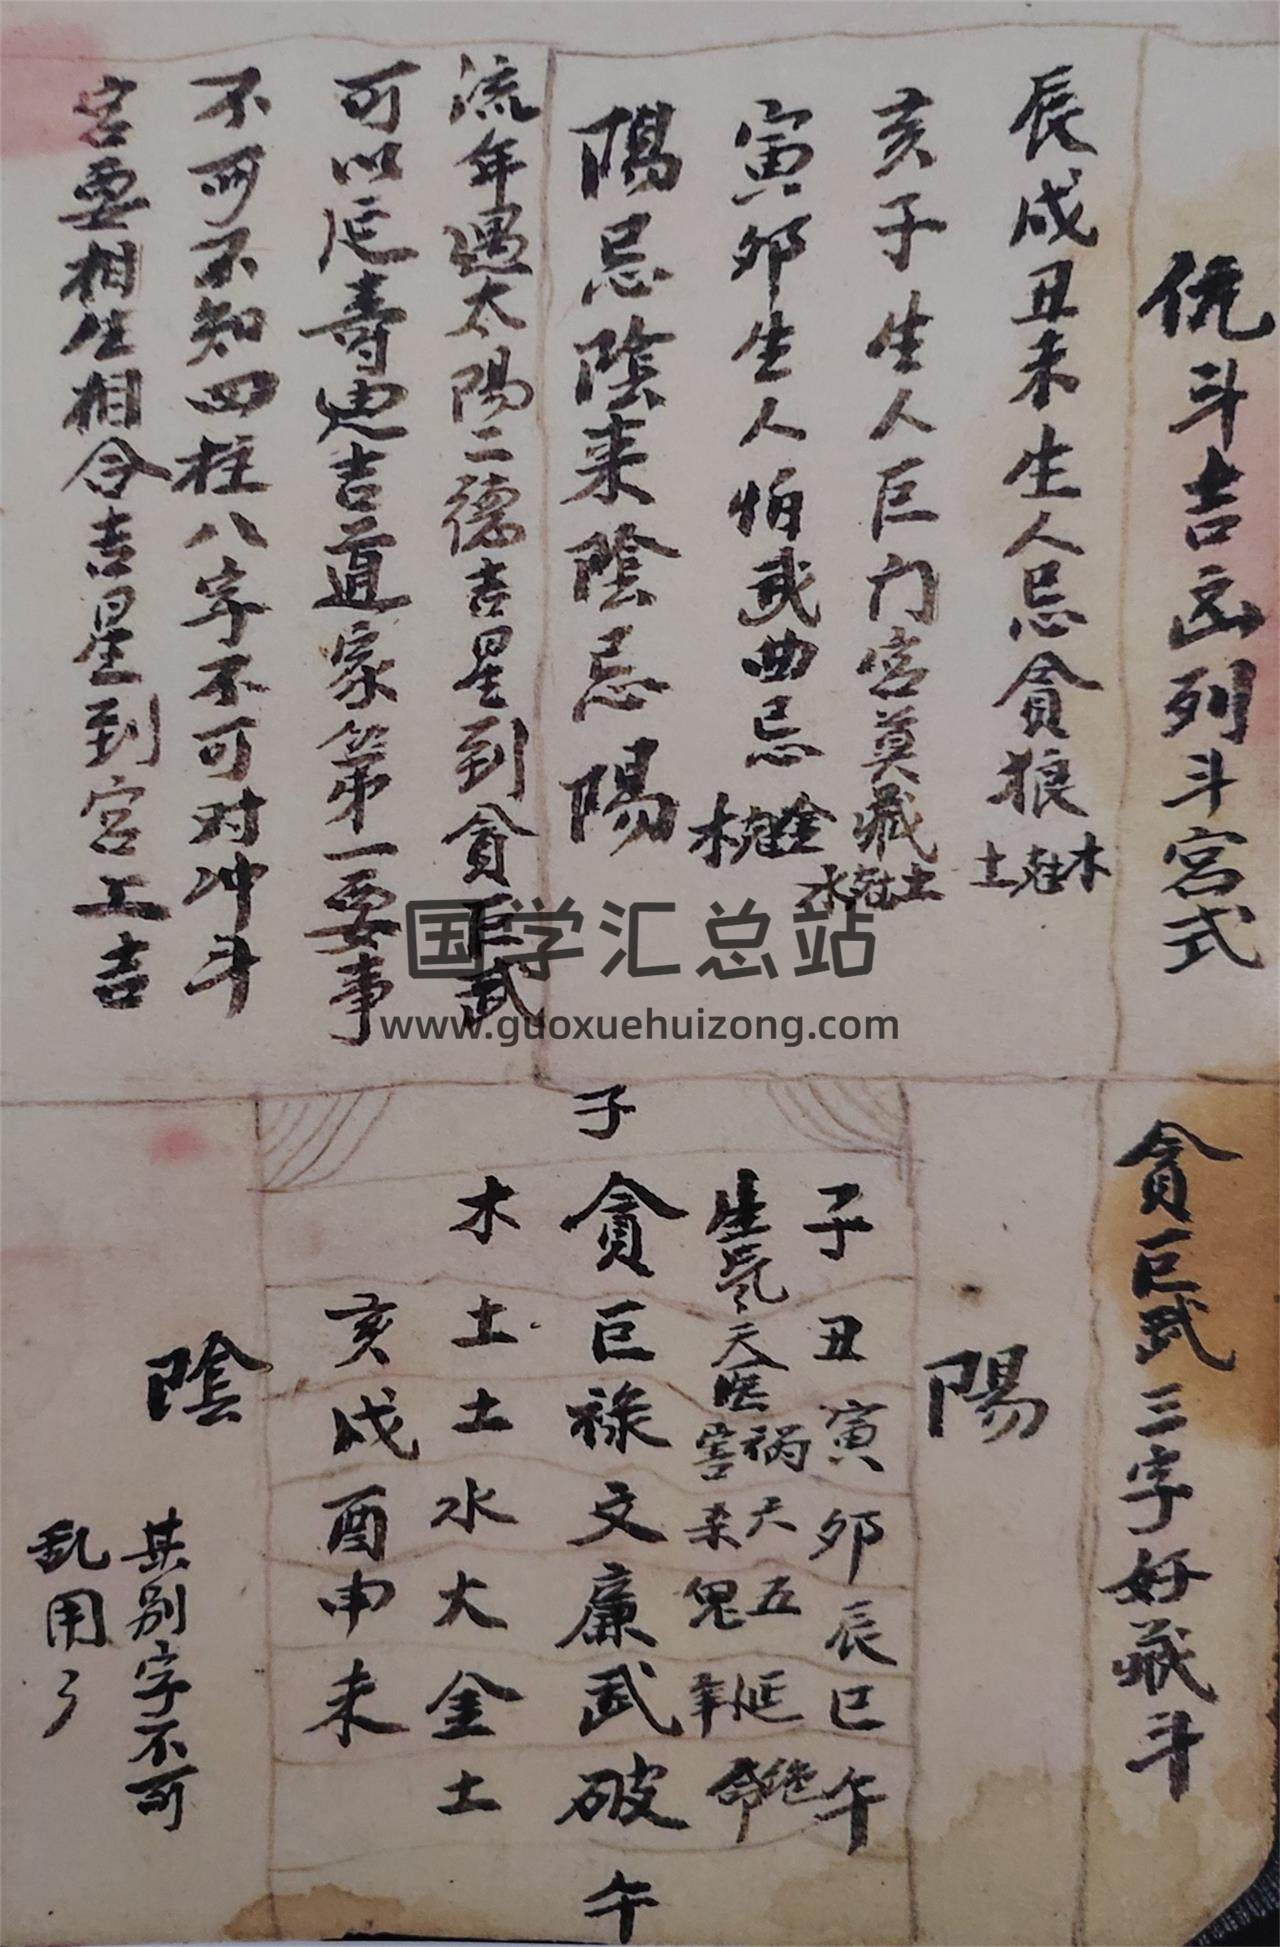 侊斗吉凶列斗宮式
辰戌丑未生人忌貪狼 木尅土
亥子生人巨门宮莫藏 土尅水
寅卯生人怕武曲忌 金尅木
陽忌陰来陰忌陽
流年遇太陽二德吉星到貪巨武
可以延寿迪吉道家第一要事
不可不知四柱八字不可对冲斗
宮要相生相合吉星到宮上吉
国学汇总站
www.guoxuehuizong.com
貪巨武三字好藏斗
陽
子
子丑寅卯辰巳午
生気 天医 祸害 天杀 五鬼 延年 绝命
貪巨祿文廉武破
木土土水火金土
亥戌酉申未
午
陰
其别字不可
乱用了